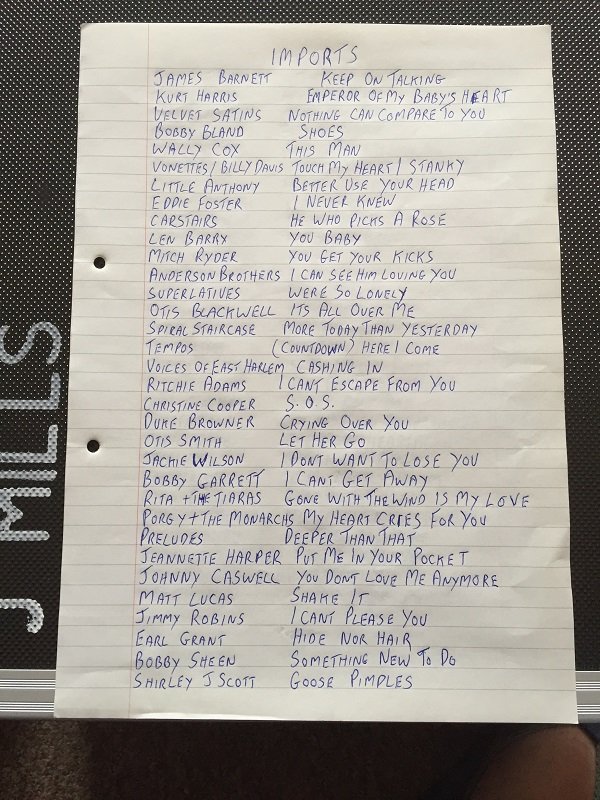 IMPORTS
JAMES BARNETT KEEP ON TALKING
KURT HARRIS EMPEROR OF MY BABY'S HEART
VELVET SATINS NOTHING CAN COMPARE TO YOU
BOBBY BLAND SHOES
WALLY COX THIS MAN
VONETTES/BILLY DAVIS TOUCH MY HEART/STANKY
LITTLE ANTHONY BETTER USE YOUR HEAD
EDDIE FOSTER I NEVER KNEW
CARSTAIRS HE WHO PICKS A ROSE
LEN BARRY YOU BABY
MITCH RYDER YOU GET YOUR KICKS
ANDERSON BROTHERS I CAN SEE HIM LOVING YOU
SUPERLATIVES WERE SO LONELY
OTIS BLACKWELL ITS ALL OVER ME
SPIRAL STAIRCASE MORE TODAY THAN YESTERDAY
TEMPOS (COUNTDOWN) HERE I COME
VOICES OF EAST HARLEM CASHING IN
RITCHIE ADAMS I CANT ESCAPE FROM YOU
CHRISTINE COOPER S.O.S.
DUKE BROWNER CRYING OVER YOU
OTIS SMITH LET HER GO
JACKIE WILSON I DONT WANT TO LOSE YOU
BOBBY GARRETT I CANT GET AWAY
RITA + THE TIARAS GONE WITH THE WIND IS MY LOVE
PORGY + THE MONARCHS MY HEART CRIES FOR YOU
PRELUDES DEEPER THAN THAT
JEANNETTE HARPER PUT ME IN YOUR POCKET
JOHNNY CASWELL YOU DONT LOVE ME ANYMORE
MATT LUCAS SHAKE IT
JIMMY ROBINS I CANT PLEASE YOU
EARL GRANT HIDE NOR HAIR
BOBBY SHEEN SOMETHING NEW TO DO
SHIRLEY J SCOTT GOOSE PIMPLES
J MILLS